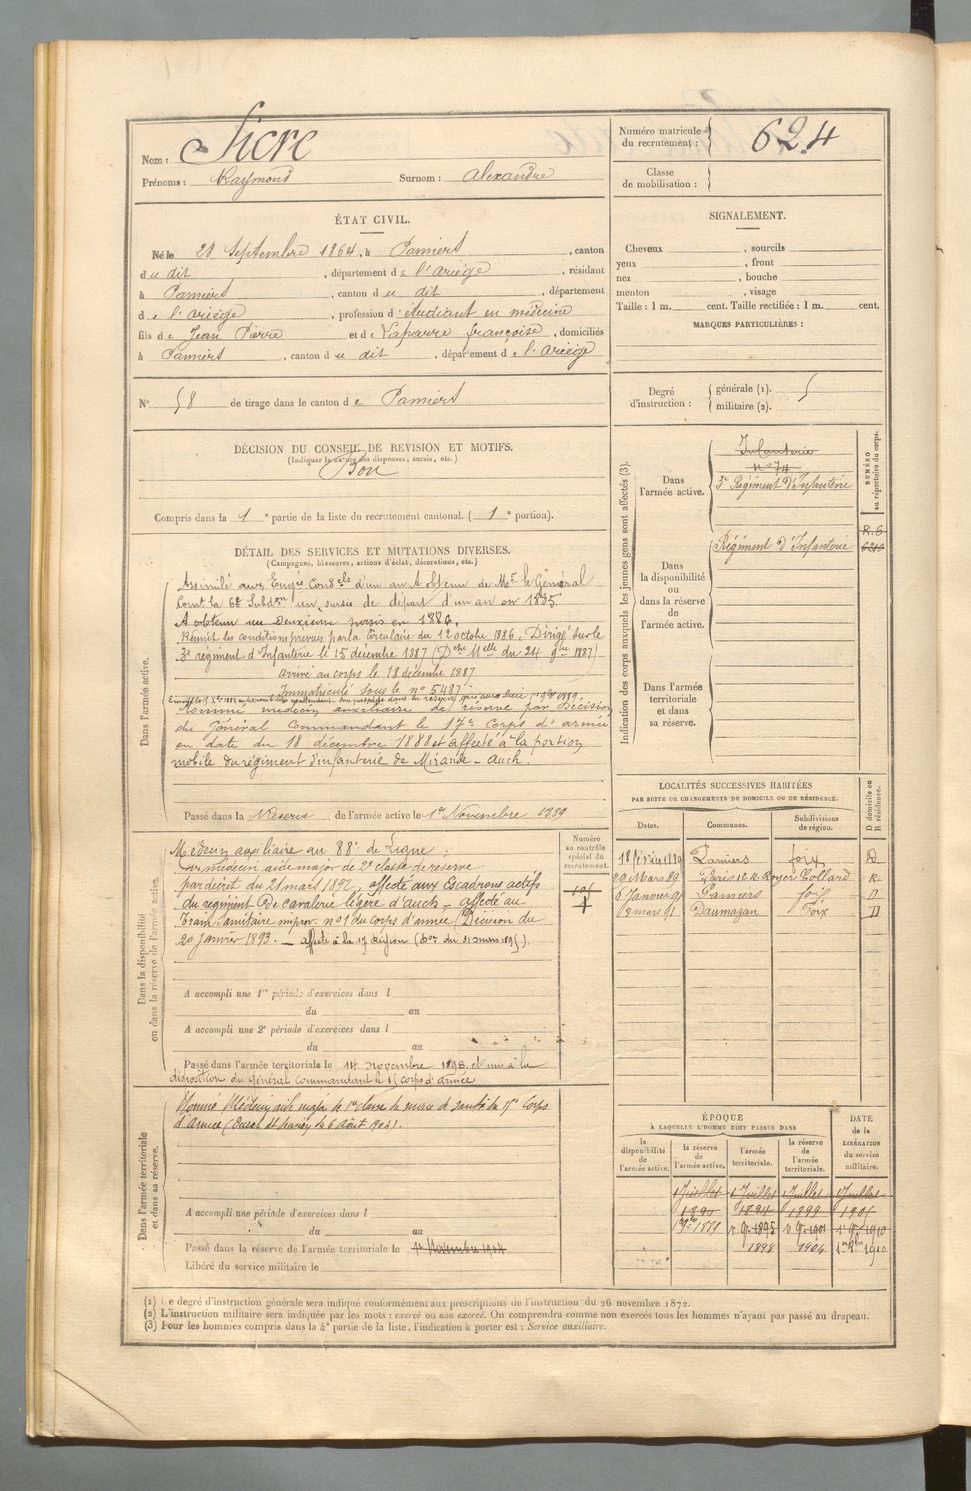 Nom : Sicre
Prénoms : Raymond Surnom : Alexandre
Numéro matricule du recrutement : 624
Classe de mobilisation :
ÉTAT CIVIL.
Né le 28 Septembre 1864, à Pamiers, canton
du dit, département de l'Ariège, résidant
à Pamiers, canton du dit, département
de l'Ariège, profession d'étudiant en médecine
fils de Jean Pierre et de Laparre françoise, domiciliés
à Pamiers, canton du dit, département de l'Ariège
N° 58 de tirage dans le canton de Pamiers
SIGNALEMENT.
Cheveux , sourcils
yeux , front
nez , bouche
menton , visage
Taille : 1 m. cent. Taille rectifiée : 1 m. cent.
MARQUES PARTICULIÈRES :
Degré d'instruction : générale (1). 5
militaire (2).
DÉCISION DU CONSEIL DE REVISION ET MOTIFS.
(Indiquer la nature des dispenses, sursis, etc.)
Bon
Compris dans la 1e partie de la liste du recrutement cantonal. (1e portion).
DÉTAIL DES SERVICES ET MUTATIONS DIVERSES.
(Campagnes, blessures, actions d'éclat, décorations, etc.)
Dans l'armée active.
Assimilé aux Engés Condels d'un an A obtenu de Mr le Général
Comt la 6e Subdon un sursis de départ d'un an en 1885.
A obtenu un deuxième sursis en 1886.
Réunit les conditions prévues par la Circulaire du 12 octobre 1886. Dirigé sur le
3e régiment d'Infanterie le 15 décembre 1887 (Dche Melle du 24 9bre 1887)
arrivé au corps le 18 décembre 1887
Immatriculé sous le n° 5487.
Nommé médecin auxiliaire de réserve par décision
du Général Commandant le 17e Corps d'armée
en date du 18 décembre 1888 et affecté à la portion
mobile du régiment d'infanterie de Mirande - Auch.
Passé dans la Réserve de l'armée active le 1er Novembre 1889
Dans la disponibilité ou dans la réserve de l'armée active.
Médecin auxiliaire au 88e de Ligne ;
médecin aide major de 2e classe de réserve
par décret du 21 mars 1892, affecté aux Escadrons actifs
du régiment de cavalerie légère d'Auch - affecté au
Train Sanitaire improv. n° 1 du corps d'armée (Décision du
20 janvier 1893. - affecté à la 17 Région
Numéro au contrôle spécial du recrutement.
A accompli une 1re période d'exercices dans l
du au
A accompli une 2e période d'exercices dans l
du au
Passé dans l'armée territoriale le 14 novembre 1898 et mis à la
disposition du Général commandant le 17 corps d'armée
Dans l'armée territoriale et dans sa réserve.
Nommé Médecin aide major de 1re classe du service de santé du 17e Corps
d'Armée
A accompli une période d'exercices dans l
du au
Passé dans la réserve de l'armée territoriale le 1er Novembre 1904
Libéré du service militaire le
Indication des corps auxquels les jeunes gens sont affectés (3).
NUMÉRO au répertoire du corps.
Dans l'armée active.
Infanterie
n° 74
3e Régiment d'Infanterie
Dans la disponibilité ou dans la réserve de l'armée active.
Régiment d'Infanterie
R. 6
Dans l'armée territoriale et dans sa réserve.
LOCALITÉS SUCCESSIVES HABITÉES
PAR SUITE DE CHANGEMENTS DE DOMICILE OU DE RÉSIDENCE.
Dates. Communes. Subdivisions de région. D domicile ou R résidence.
18 février 1889 Pamiers foix D
29 Mars 89 Paris 12 R. Royer Collard R.
6 Janvier 91 Pamiers foix D
12 mars 91 Daumazan Foix D
ÉPOQUE
À LAQUELLE L'HOMME DOIT PASSER DANS
la disponibilité de l'armée active. la réserve de l'armée active. l'armée territoriale. la réserve de l'armée territoriale.
DATE de la LIBÉRATION du service militaire.
1 Juillet 1 Juillet 1 Juillet 1 Juillet
1890 1894 1899 1905
1898 1904
(1) Le degré d'instruction générale sera indiqué conformément aux prescriptions de l'instruction du 26 novembre 1872.
(2) L'instruction militaire sera indiquée par les mots : exercé ou non exercé. On comprendra comme non exercés tous les hommes n'ayant pas passé au drapeau.
(3) Pour les hommes compris dans la 4e partie de la liste, l'indication à porter est : Service auxiliaire.